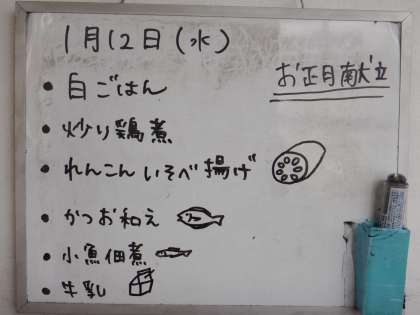 1月12日(水)
お正月献立
• 白ごはん
• 炒り鶏煮
• れんこんいそべ揚げ
• かつお和え
• 小魚佃煮
• 牛乳